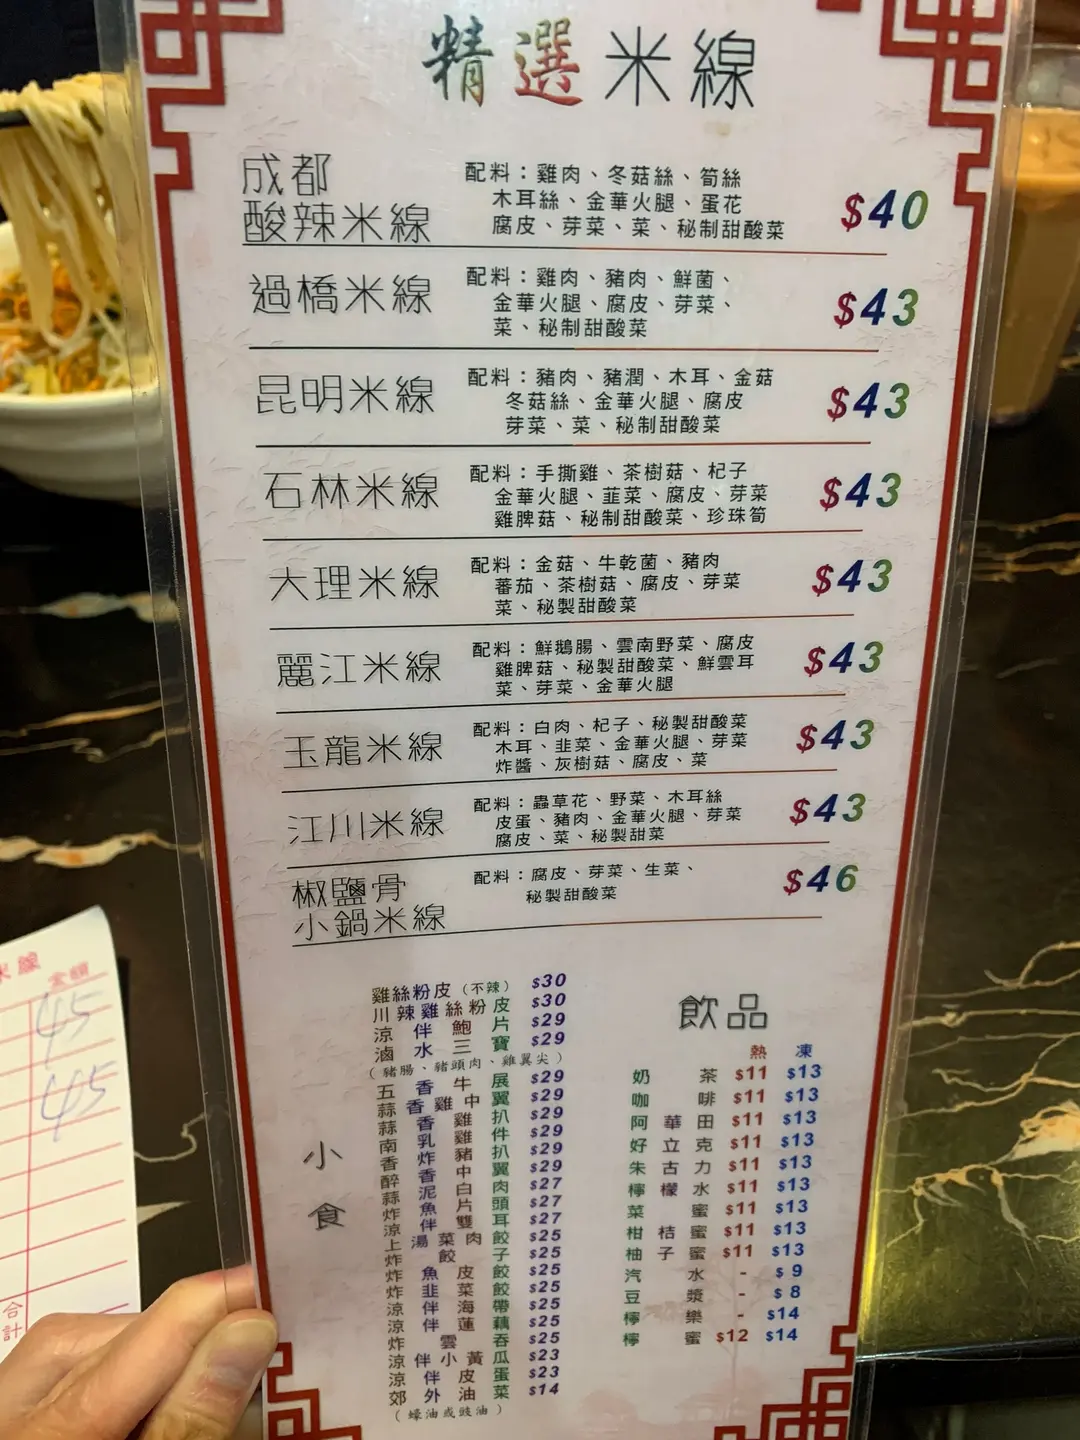 精選米線
成都
酸辣米線
配料：雞肉、冬菇絲、筍絲
木耳絲、金華火腿、蛋花
腐皮、芽菜、菜、秘制甜酸菜
$40
過橋米線
配料：雞肉、豬肉、鮮菌、
金華火腿、腐皮、芽菜、
菜、秘制甜酸菜
$43
昆明米線
配料：豬肉、豬潤、木耳、金菇
冬菇絲、金華火腿、腐皮
芽菜、菜、秘制甜酸菜
$43
石林米線
配料：手撕雞、茶樹菇、杞子
金華火腿、韮菜、腐皮、芽菜
雞脾菇、秘制甜酸菜、珍珠筍
$43
大理米線
配料：金菇、牛乾菌、豬肉
蕃茄、茶樹菇、腐皮、芽菜
菜、秘製甜酸菜
$43
麗江米線
配料：鮮鵝腸、雲南野菜、腐皮
雞脾菇、秘製甜酸菜、鮮雲耳
菜、芽菜、金華火腿
$43
玉龍米線
配料：白肉、杞子、秘製甜酸菜
木耳、韭菜、金華火腿、芽菜
炸醬、灰樹菇、腐皮、菜
$43
江川米線
配料：蟲草花、野菜、木耳絲
皮蛋、豬肉、金華火腿、芽菜
腐皮、菜、秘製甜菜
$43
椒鹽骨
小鍋米線
配料：腐皮、芽菜、生菜、
秘製甜酸菜
$46
小食
雞絲粉皮（不辣） $30
川辣雞絲粉皮 $30
涼伴鮑片 $29
滷水三寶 $29
（豬腸、豬頭肉、雞翼尖）
五香牛展 $29
蒜香雞中翼 $29
蒜香雞扒 $29
南乳雞件 $29
香炸豬扒 $29
醉香中翼 $29
蒜泥白肉 $27
炸魚片頭 $27
涼伴雙耳 $27
上湯菜肉餃 $25
炸餃子 $25
炸魚皮餃 $25
炸韭菜餃 $25
涼伴海帶 $25
涼伴蓮藕 $25
炸雲吞 $25
涼伴小黃瓜 $23
涼伴皮蛋 $23
郊外油菜 $14
（蠔油或豉油）
飲品
熱 凍
奶茶 $11 $13
咖啡 $11 $13
阿華田 $11 $13
好立克 $11 $13
朱古力 $11 $13
檸檬水 $11 $13
菜蜜 $11 $13
柑桔蜜 $11 $13
柚子蜜 $11 $13
汽水 - $9
豆漿 - $8
檸樂 - $14
檸蜜 $12 $14
米線
金額
45
45
合計